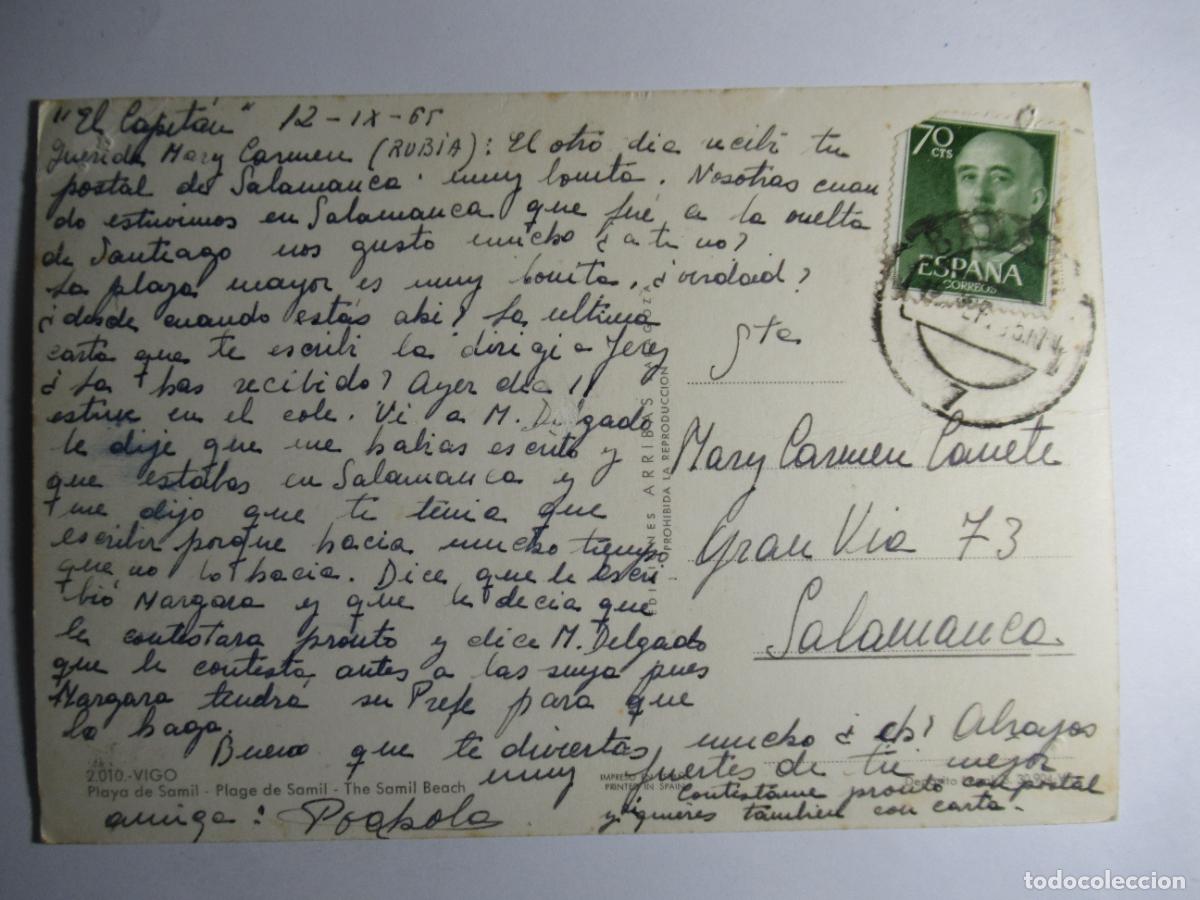 "El Capitán" 12-IX-65
Querida Mary Carmen (RUBIA): El otro dia recibí tu
postal de Salamanca muy bonita. Nosotras cuan
do estuvimos en Salamanca que fué a la vuelta
de Santiago nos gusto mucho ¿a ti no?
La plaza mayor es muy bonita, ¿verdaid?
¿desde cuando estás ahi? La ultima
carta que te escribí la dirigí a Jerez
¿La has recibido? Ayer dia 11
estuve en el cole. Vi a M. Delgado
le dije que me habias escrito y
que estabas en Salamanca y
me dijo que te tenia que
escribir porque hacia mucho tiempo
que no lo hacia. Dice que le escri
bió Margara y que le decia que
le contestara pronto y dice M. Delgado
que le contesta antes a las suya pues
Margara tendrá su Prefe para que
lo haga.
Bueno que te diviertas mucho ¿eh? Abrazos
muy fuertes de tu mejor
amiga:
Contestame pronto con postal
y si quieres tambien con carta.
70
CTS
ESPAÑA
CORREOS
Sta
Mary Carmen Canete
Gran Via 73
Salamanca
EDICIONES ARRIBAS ZARAGOZA
PROHIBIDA LA REPRODUCCION
2.010.-VIGO
Playa de Samil - Plage de Samil - The Samil Beach
IMPRESO EN ESPAÑA
PRINTED IN SPAIN
Depósito
todocoleccion